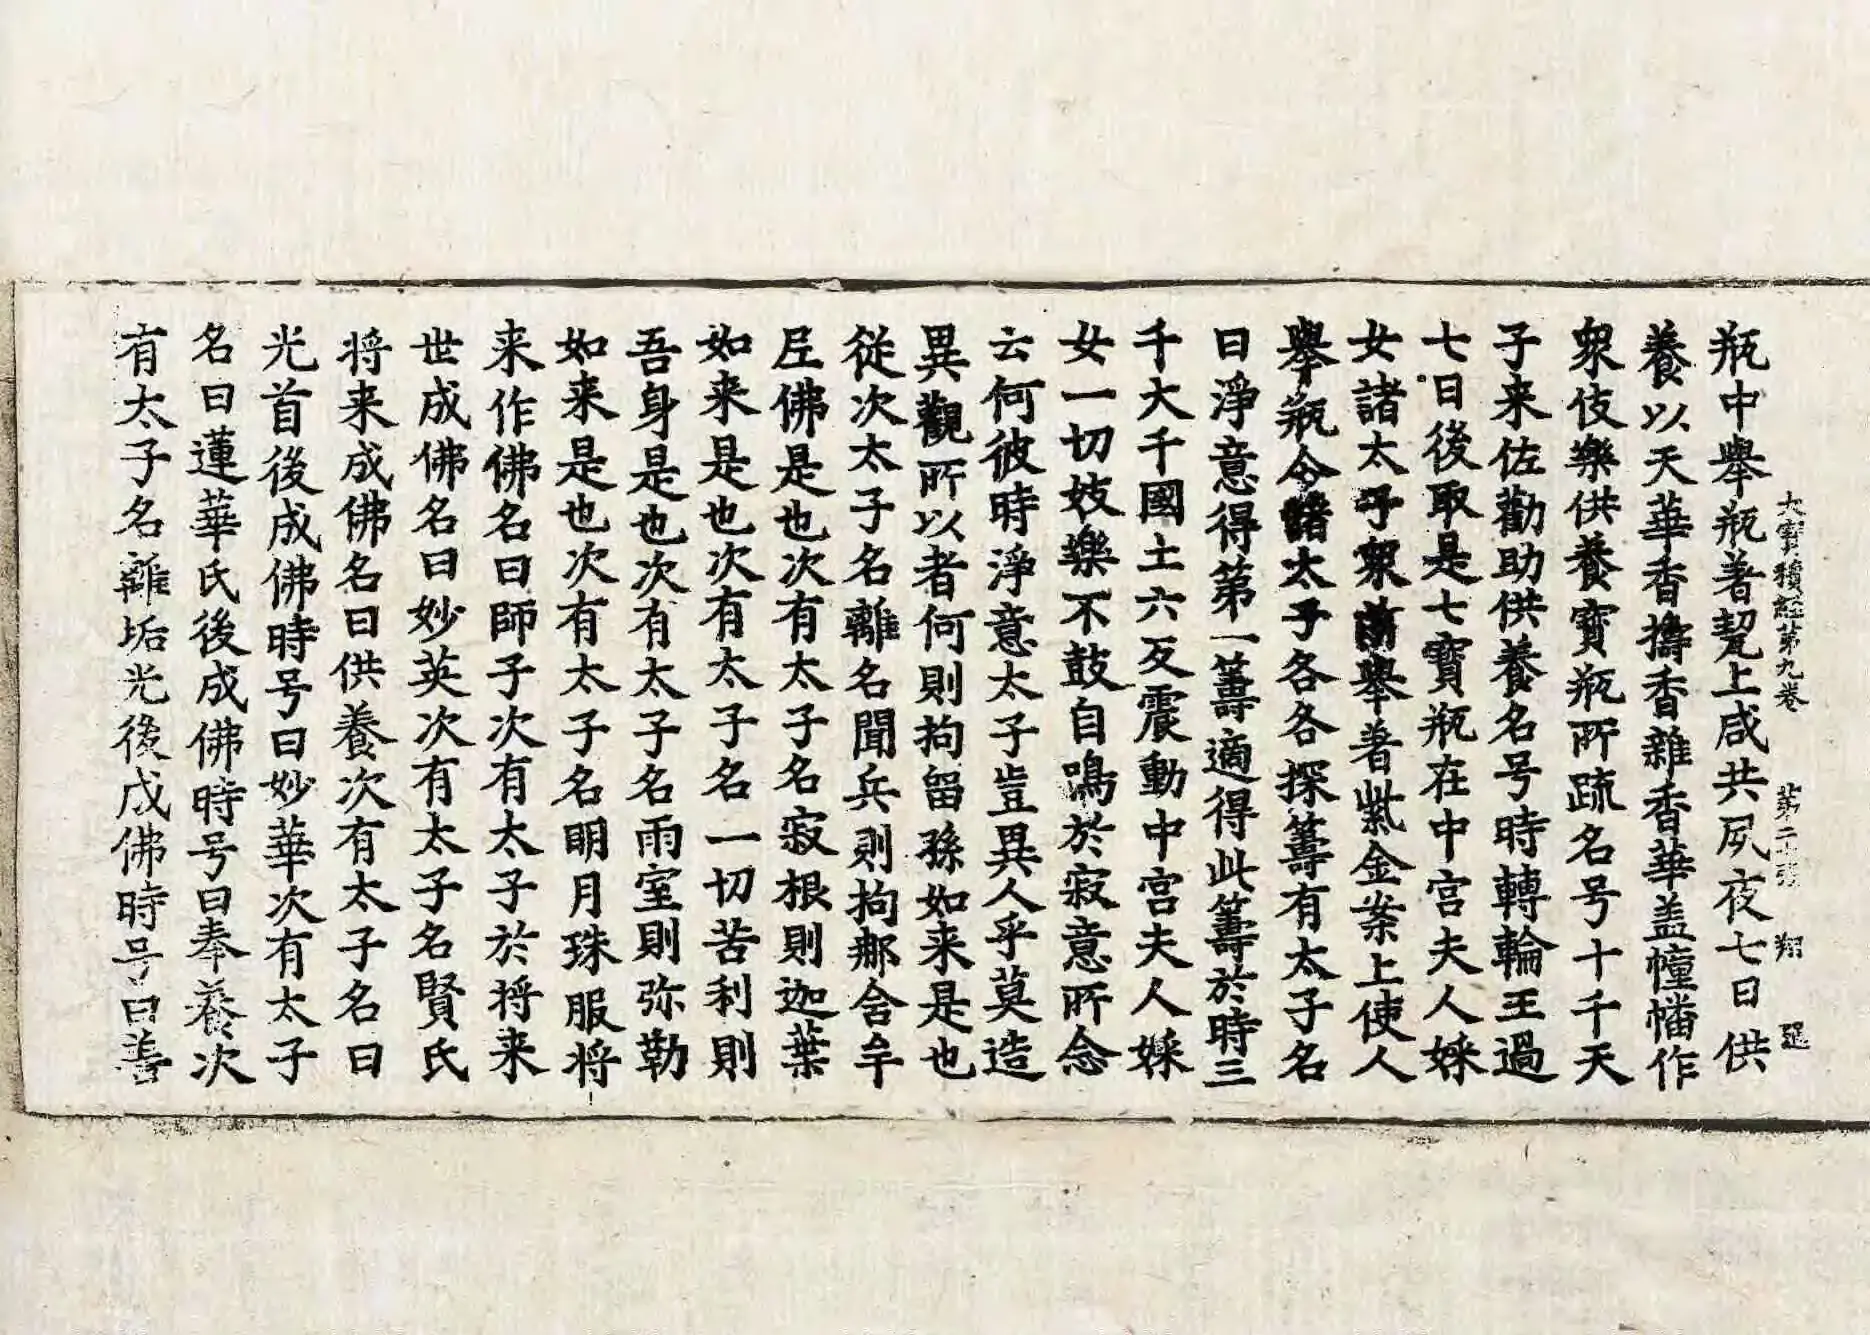 大寶積經第九卷 第二十張 翔
瓶中舉瓶著上咸共夙夜七日供
養以天華香擣香雜香華盖幢幡作
衆伎樂供養寶瓶所疏名号十千天
子来佐勸助供養名号時轉輪王過
七日後取是七寶瓶在中宫夫人婇
女諸太子衆前舉著紫金案上使人
舉瓶令諸太子各各探籌有太子名
曰淨意得第一籌適得此籌於時三
千大千國土六反震動中宫夫人婇
女一切妓樂不鼓自鳴於寂意所念
云何彼時淨意太子豈異人乎莫造
異觀所以者何則拘留孫如来是也
從次太子名離名聞兵則拘那含牟
尼佛是也次有太子名寂根則迦葉
如来是也次有太子名一切苦利則
吾身是也次有太子名雨室則弥勒
如来是也次有太子名明月珠服将
来作佛名曰師子次有太子於将来
世成佛名曰妙英次有太子名賢氏
将来成佛名曰供養次有太子名曰
光首後成佛時号曰妙華次有太子
名曰蓮華氏後成佛時号曰奉養次
有太子名離垢光後成佛時号曰善